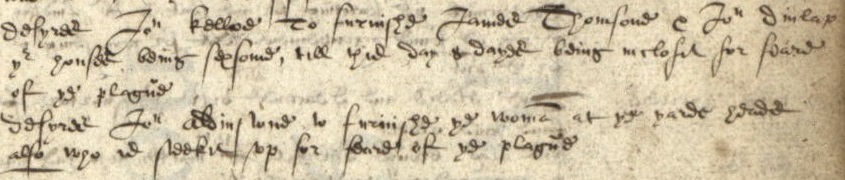 desyres Jon kelloe To furnishe James Thomsone & Jon dunlap
yr houses being sexsome, till this day 8 dayes being inclosit for feare
of ye plague
desyres Jon to furnishe ye woman at ye yarde heade
also who is steekit vp for feare of ye plague